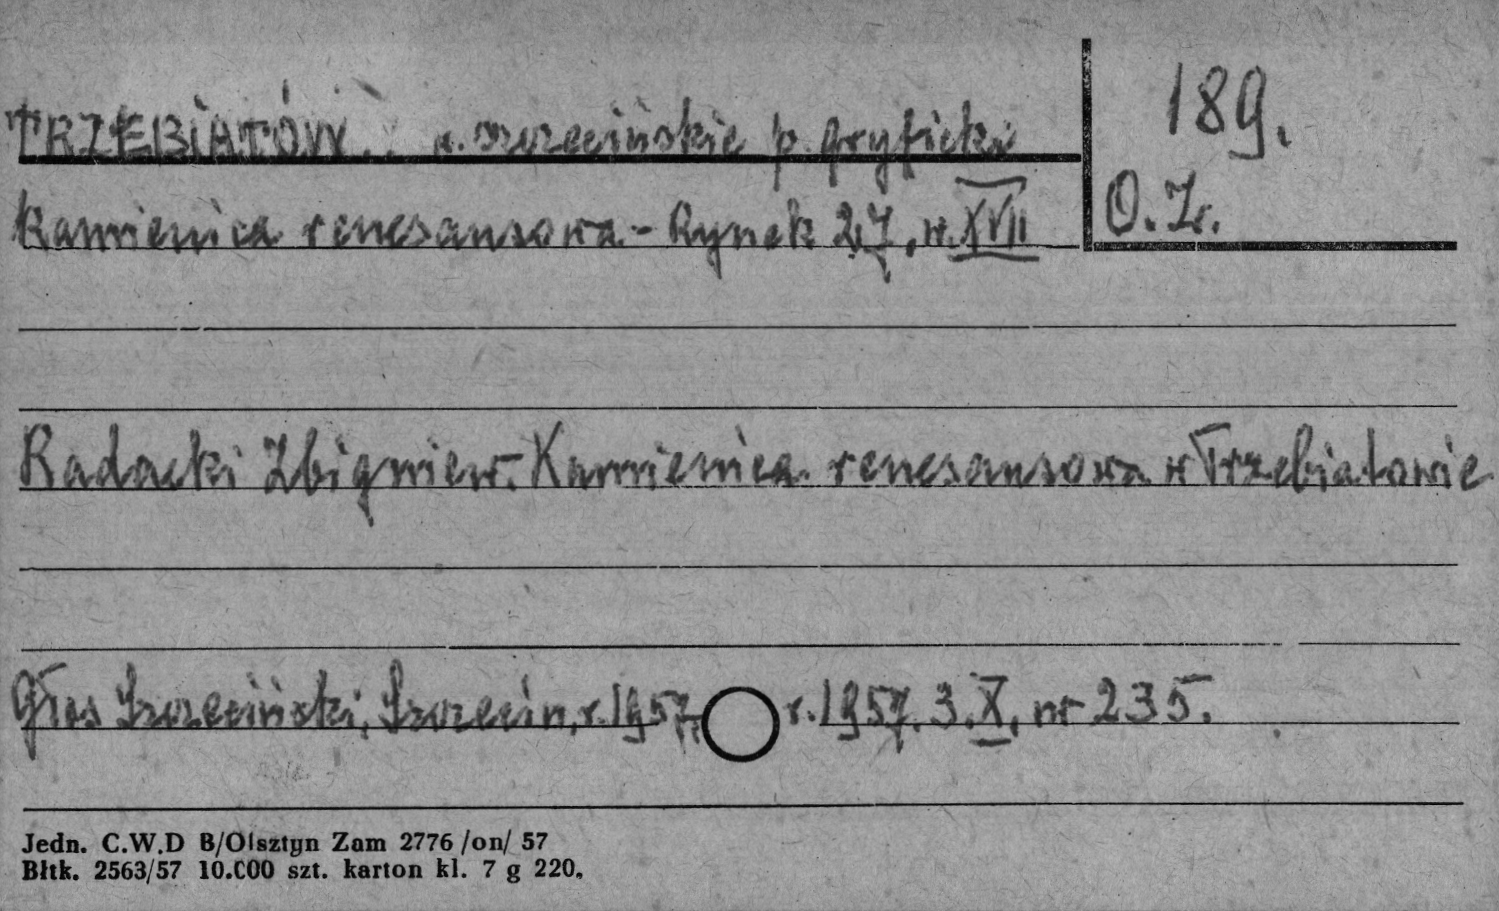 TRZEBIATÓW. w. szczecińskie p. gryficki
189.
Kamienica renesansowa - Rynek 27, w. XVII
O. Z.
Radacki Zbigniew. Kamienica renesansowa w Trzebiatowie
Głos Szczeciński, Szczecin, r. 1957, r. 1957. 3. X. nr 235.
Jedn. C.W.D B/Olsztyn Zam 2776 /on/ 57
Błtk. 2563/57 10.000 szt. karton kl. 7 g 220,